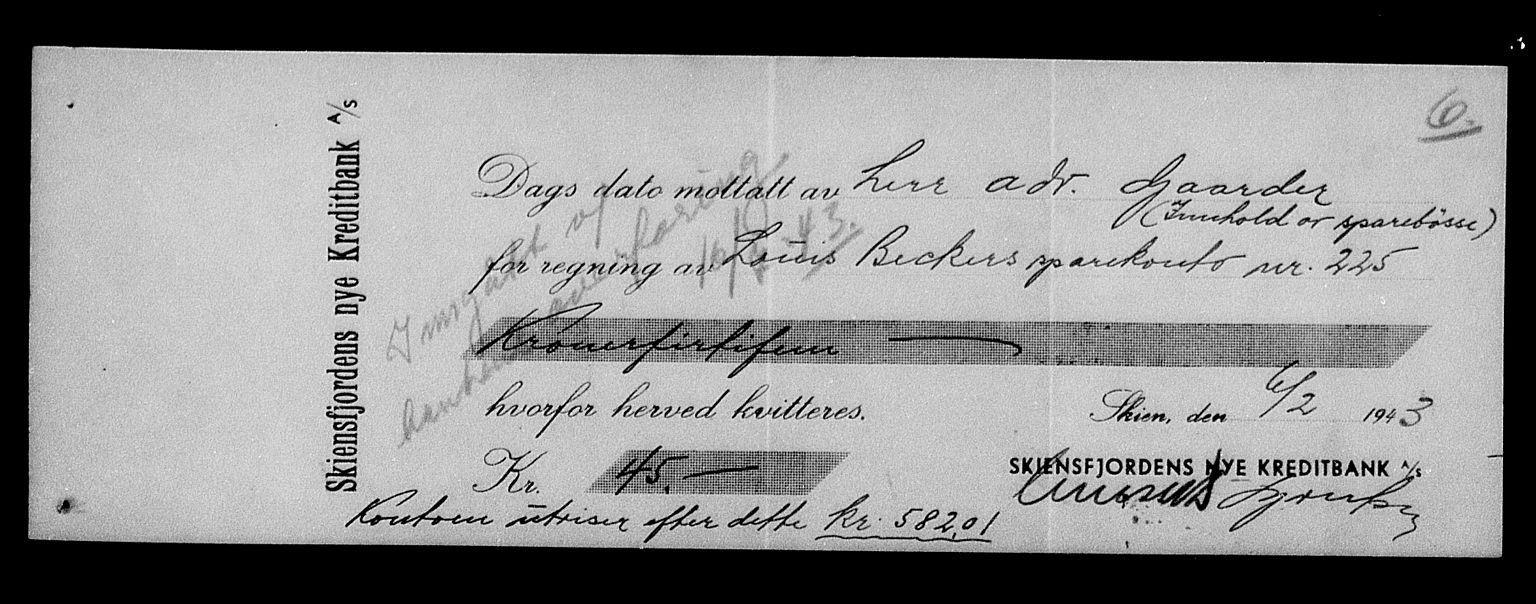 Skiensfjordens nye Kreditbank A/S
6.
Dags dato mottatt av Herr adv. Gaarder
(Innhold av sparebösse)
for regning av Louis Beckers sparekonto nr. 225
Kronerførtifem
hvorfor herved kvitteres.
Skien, den 6/2 1943
Kr. 45.—
SKIENSFJORDENS NYE KREDITBANK A/S
Kontoen utviser efter dette kr. 582,01
Inngått
43.